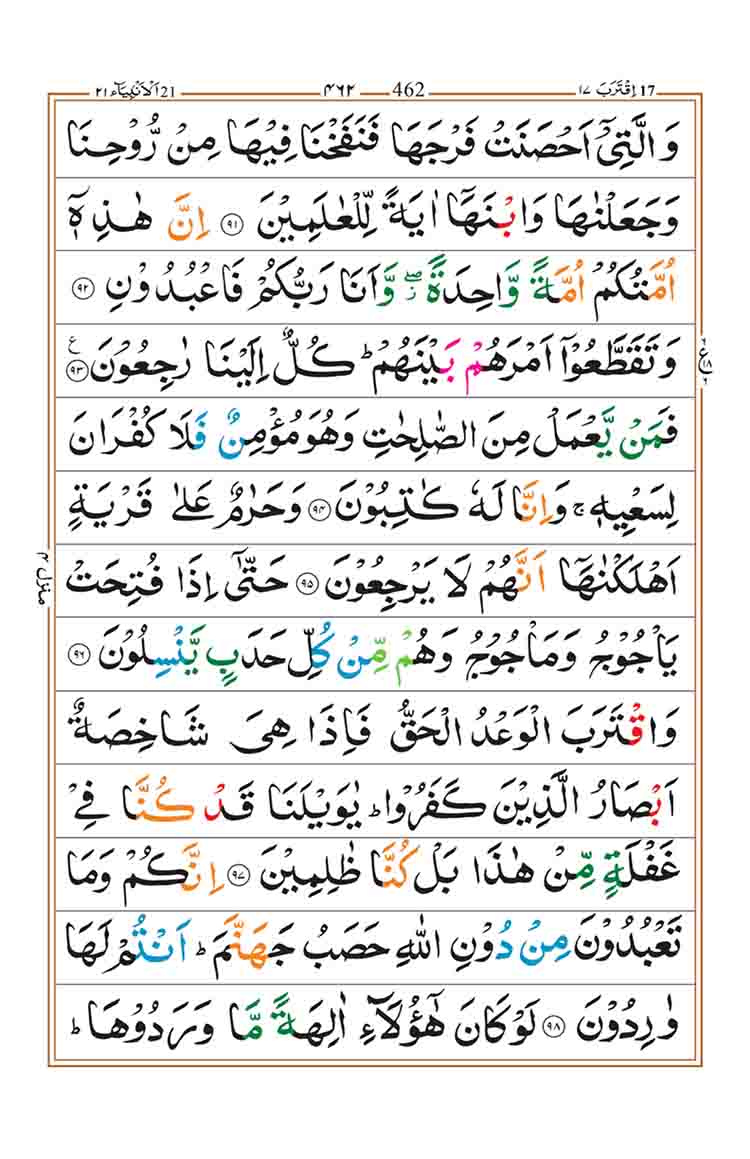 اِقْتَرَبَ ١٧ 17 462 ٤٦٢ اَلْاَنْۢبِيَآء ٢١ 21
وَ الَّتِىْۤ اَحْصَنَتْ فَرْجَهَا فَنَفَخْنَا فِيْهَا مِنْ رُّوْحِنَا
وَ جَعَلْنٰهَا وَابْنَهَاۤ اٰيَةً لِّلْعٰلَمِيْنَ ۝٩١ اِنَّ هٰذِهٖۤ
اُمَّتُكُمْ اُمَّةً وَّاحِدَةً ۖ ز وَّاَنَا رَبُّكُمْ فَاعْبُدُوْنِ ۝٩٢
وَ تَقَطَّعُوْۤا اَمْرَهُمْ بَيْنَهُمْ ؕ كُلٌّ اِلَيْنَا رٰجِعُوْنَ ۝٩٣ ع
ع ١٨
فَمَنْ يَّعْمَلْ مِنَ الصّٰلِحٰتِ وَهُوَ مُؤْمِنٌ فَلَا كُفْرَانَ
لِسَعْيِهٖ ۚ وَاِنَّا لَهٗ كٰتِبُوْنَ ۝٩٤ وَحَرٰمٌ عَلٰى قَرْيَةٍ
اَهْلَكْنٰهَاۤ اَنَّهُمْ لَا يَرْجِعُوْنَ ۝٩٥ حَتّٰٓى اِذَا فُتِحَتْ
منزل ٤
يَاْجُوْجُ وَمَاْجُوْجُ وَهُمْ مِّنْ كُلِّ حَدَبٍ يَّنْسِلُوْنَ ۝٩٦
وَاقْتَرَبَ الْوَعْدُ الْحَقُّ فَاِذَا هِىَ شَاخِصَةٌ
اَبْصَارُ الَّذِيْنَ كَفَرُوْا ؕ يٰوَيْلَنَا قَدْ كُنَّا فِىْ
غَفْلَةٍ مِّنْ هٰذَا بَلْ كُنَّا ظٰلِمِيْنَ ۝٩٧ اِنَّكُمْ وَمَا
تَعْبُدُوْنَ مِنْ دُوْنِ اللّٰهِ حَصَبُ جَهَنَّمَ ؕ اَنْتُمْ لَهَا
وٰرِدُوْنَ ۝٩٨ لَوْ كَانَ هٰۤؤُلَآءِ اٰلِهَةً مَّا وَرَدُوْهَا ؕ